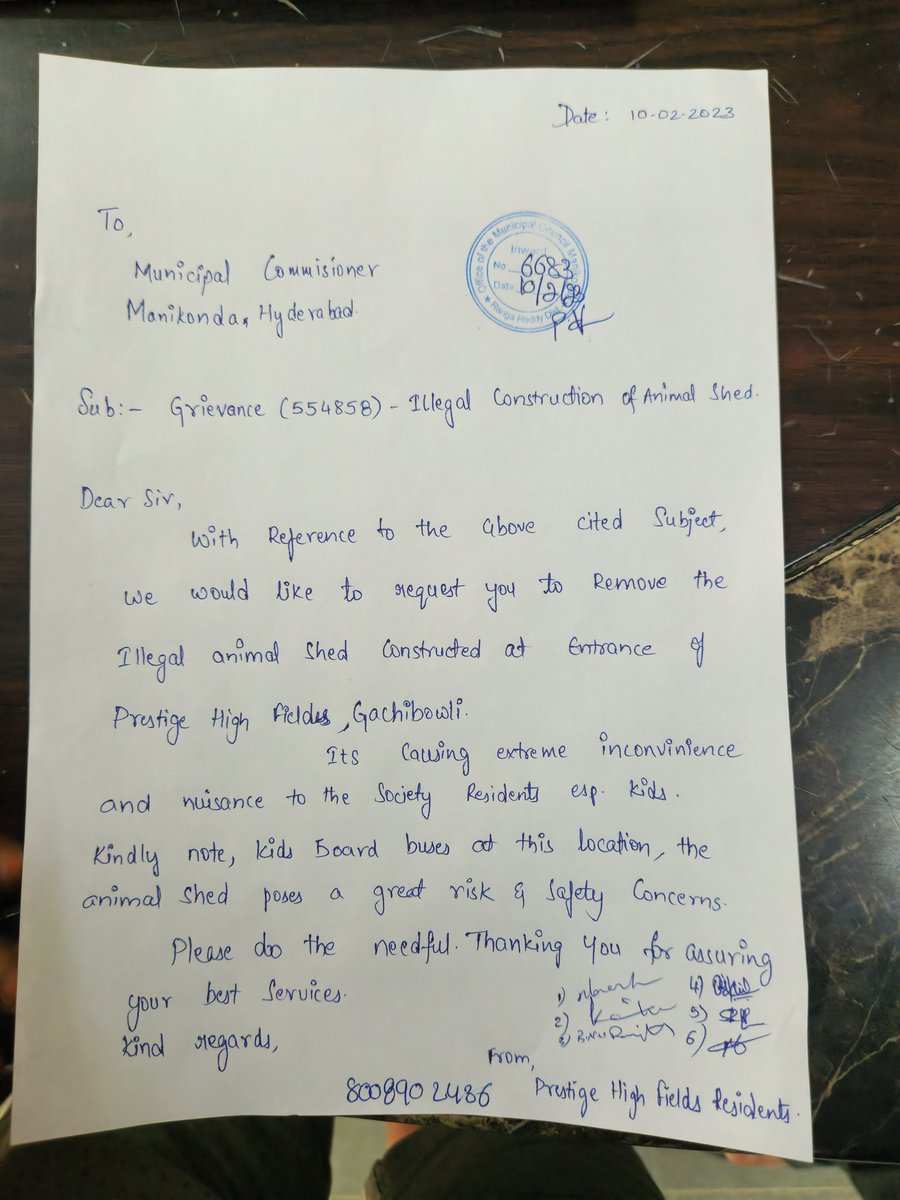 Date: 10-02-2023
To,
Municipal Commisioner
Manikonda, Hyderabad.
Office of the Municipal Council Manikonda
Inward
No 6683
Date 10/2/23
Ranga Reddy Dist
Sub:- Grievance (554858) - Illegal Construction of Animal Shed.
Dear Sir,
With Reference to the above cited Subject,
we would like to request you to Remove the
Illegal animal Shed Constructed at Entrance of
Prestige High Fields, Gachibowli.
Its Causing extreme inconvinience
and nuisance to the Society Residents esp. kids.
Kindly note, kids Board buses at this location, the
animal Shed poses a great risk & Safety Concerns.
Please do the needful. Thanking you for assuring
your best Services.
Kind regards,
1)
4)
2)
5)
3)
6)
From,
8008902486 Prestige High Fields Residents.